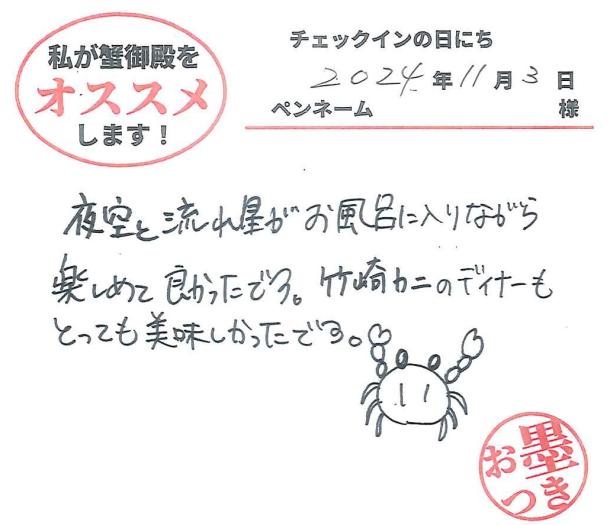 私が蟹御殿を
オススメ
します！
チェックインの日にち
2024年11月3日
ペンネーム 様
夜空と流れ星がお風呂に入りながら
楽しめて良かったです。竹崎カニのディナーも
とっても美味しかったです。
お墨つき